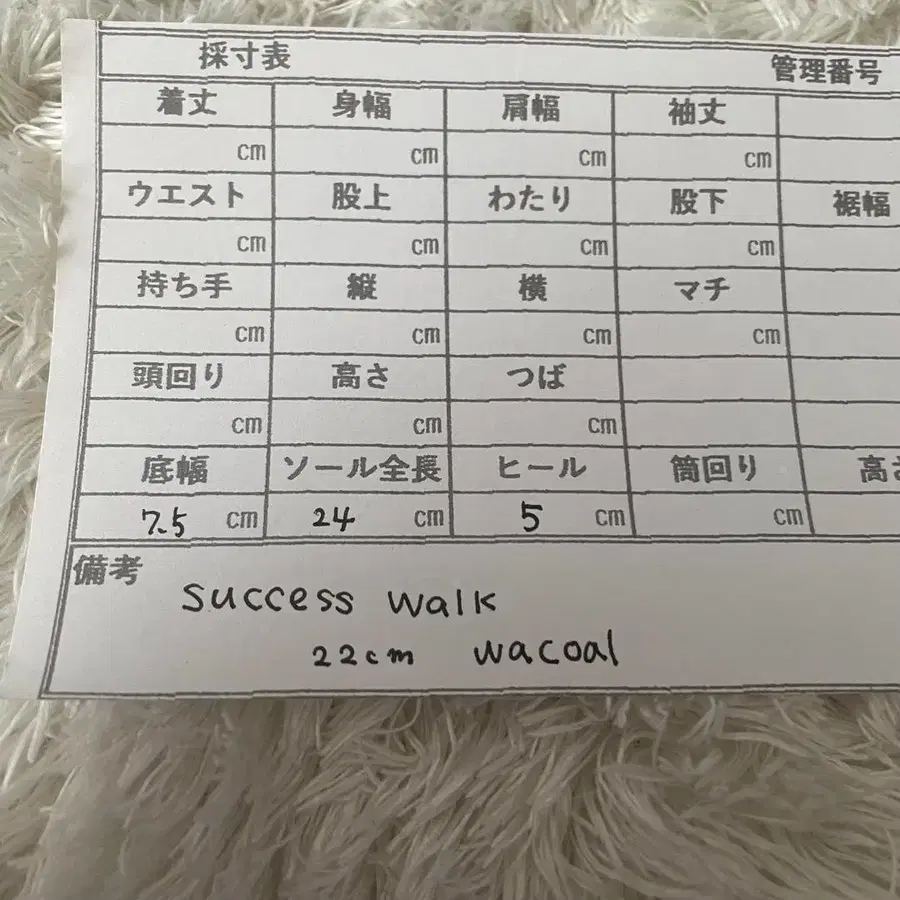 採寸表 管理番号
着丈 身幅 肩幅 袖丈
cm cm cm cm
ウエスト 股上 わたり 股下 裾幅
cm cm cm cm
持ち手 縦 横 マチ
cm cm cm cm
頭回り 高さ つば
cm cm cm
底幅 ソール全長 ヒール 筒回り 高さ
7.5 cm 24 cm 5 cm cm
備考
success walk
22cm wacoal